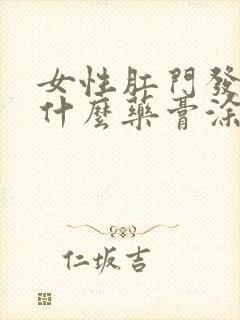 女性肛門發
什麼藥膏涂
仁坂吉